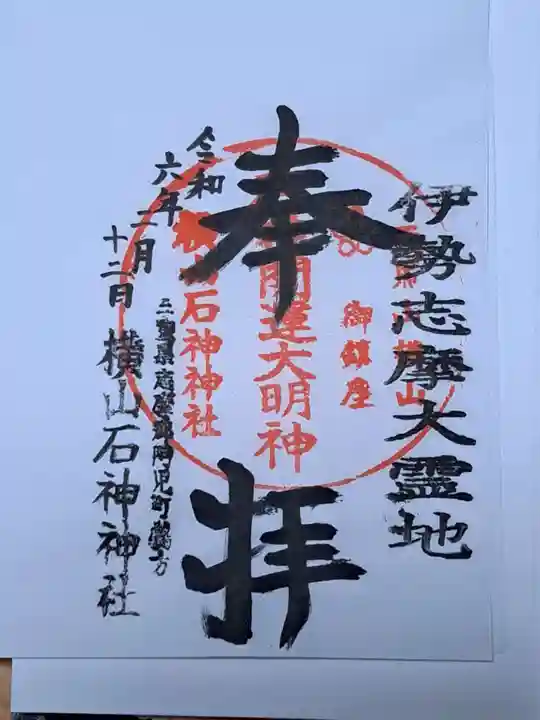 伊勢志摩大霊地
奉拝
御鎮座
開運大明神
石神神社
三重県志摩郡阿児町鵜方
令和
六年二月
十二日
横山石神神社